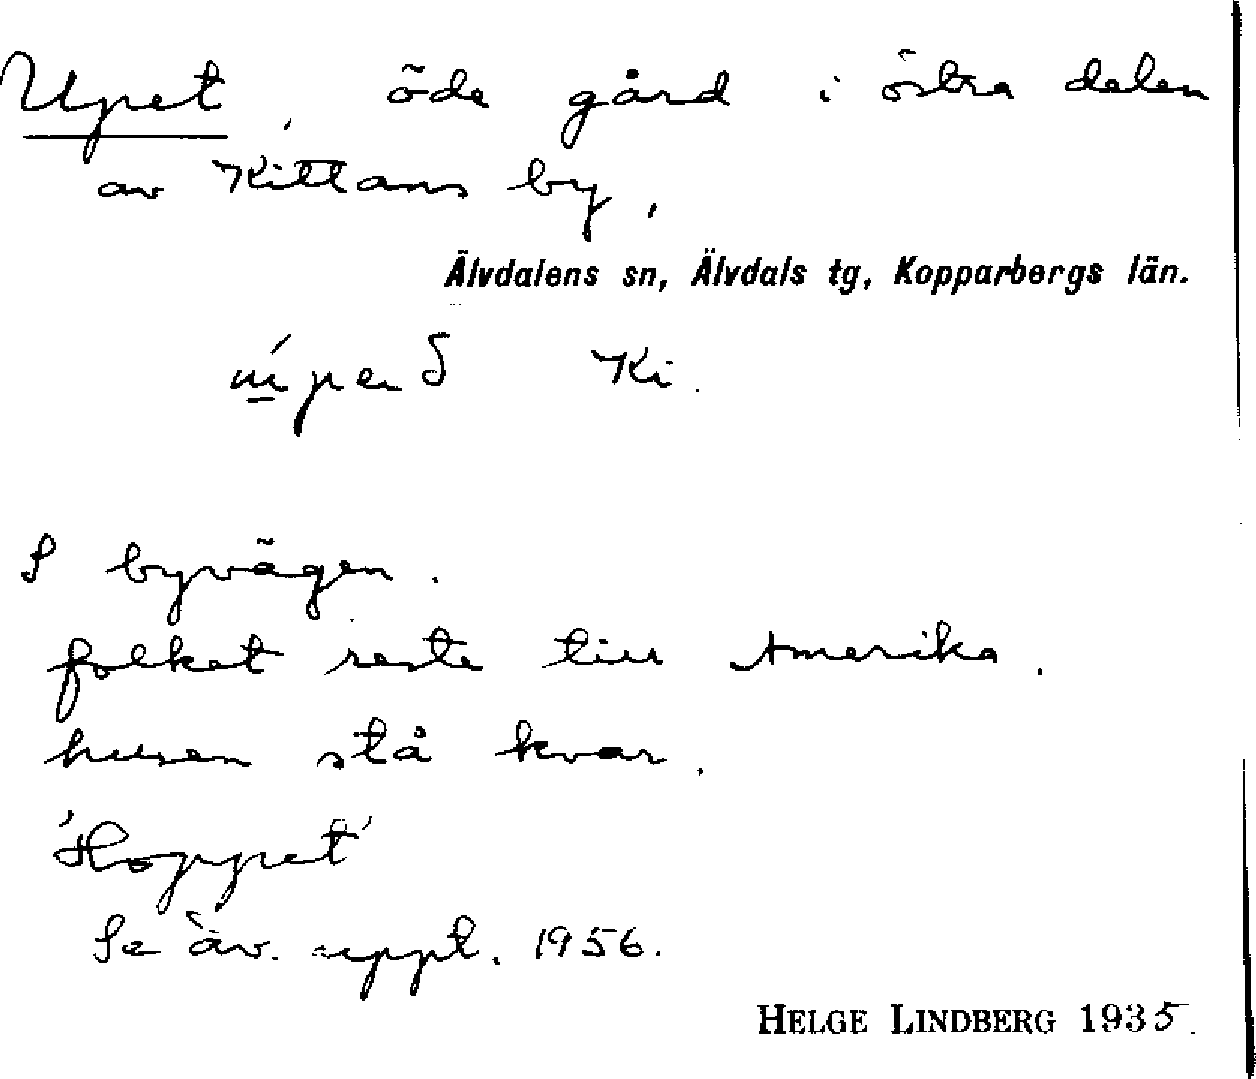 Upet, öde gård i östra delen
av Kittans by,
Älvdalens sn, Älvdals tg, Kopparbergs län.
Ki.
S byvägen.
folket reste till Amerika.
husen stå kvar.
'Hoppet'
Se äv. uppt. 1956.
HELGE LINDBERG 1935.